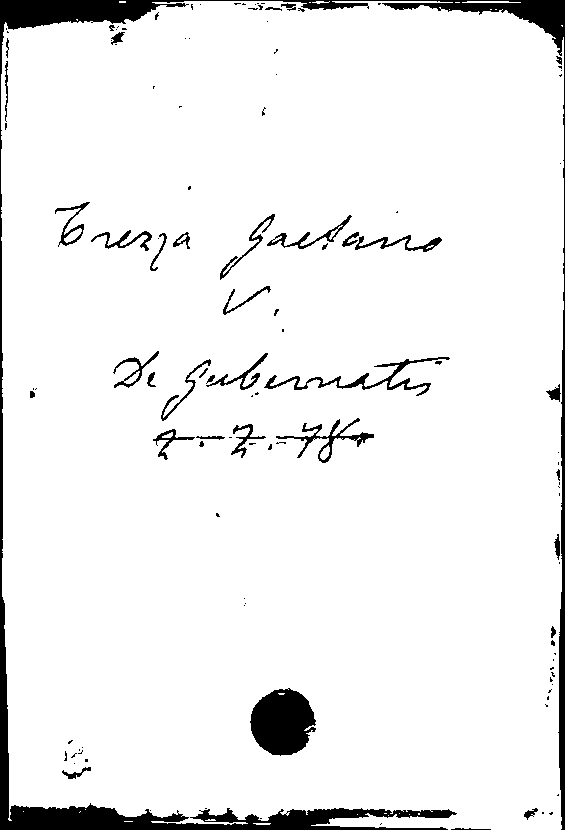 Trezza Gaetano
V.
De Gubernatis
2.2.78